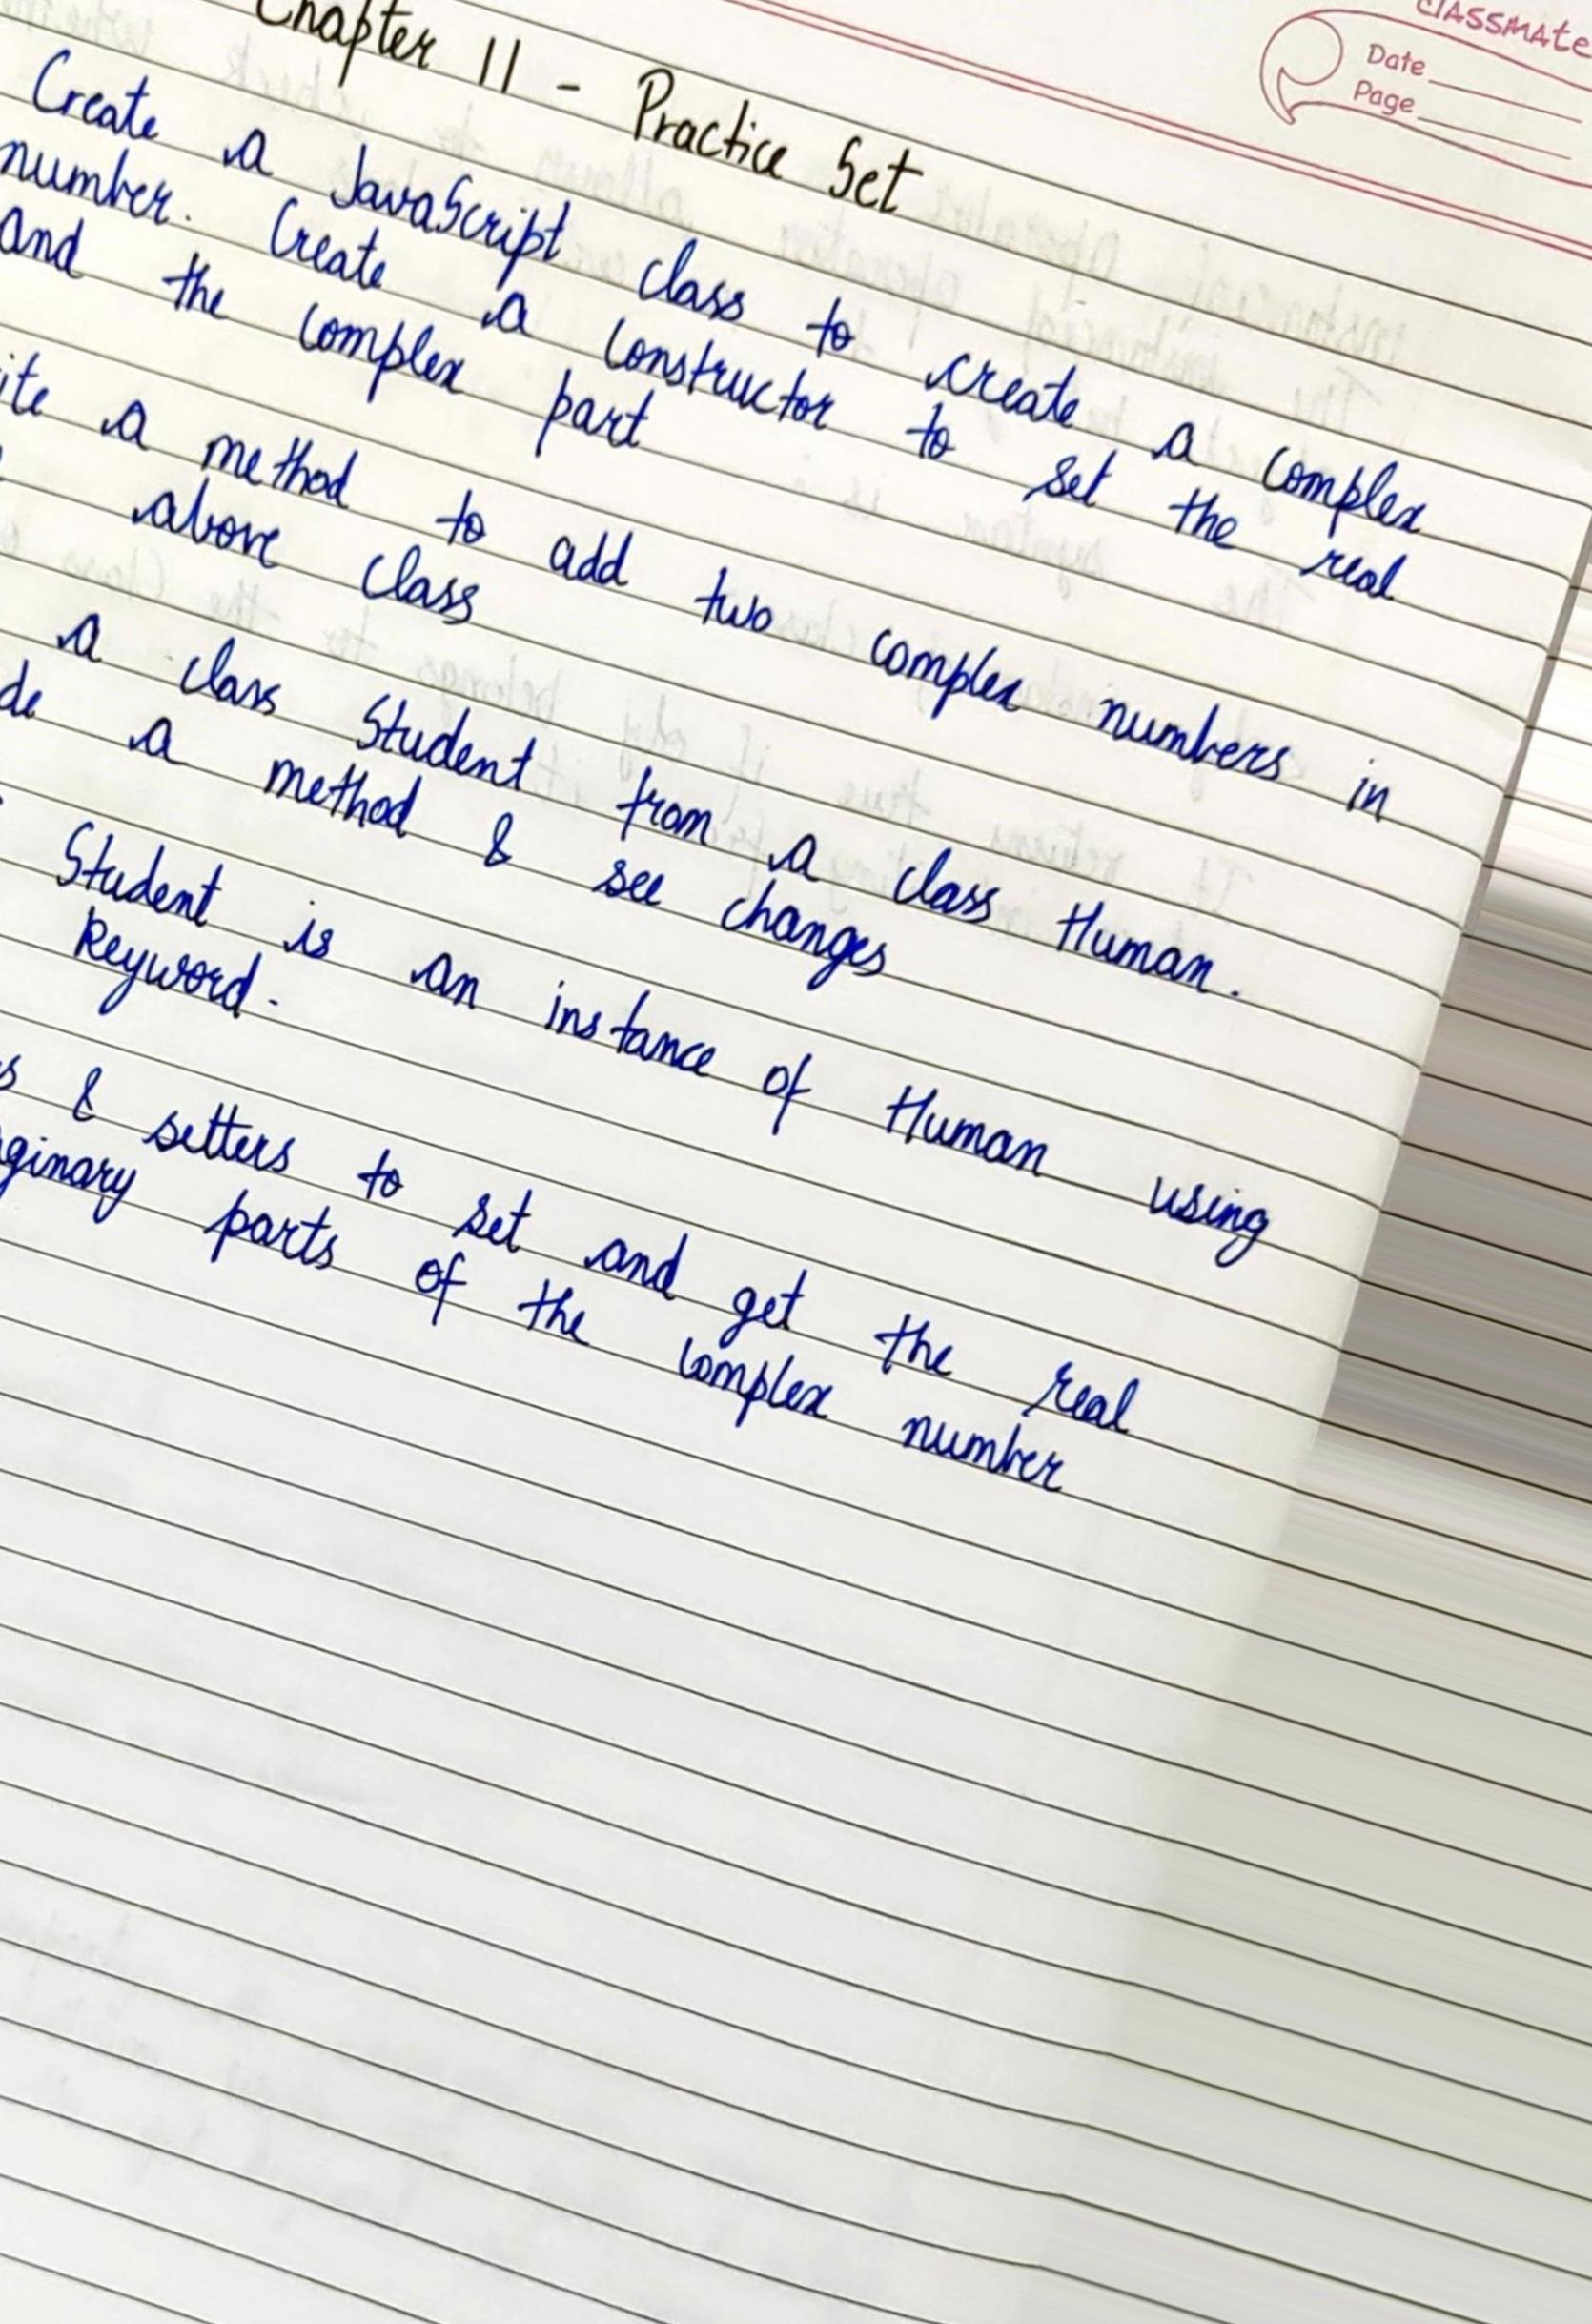 classmate
Date
Page
Chapter 11 - Practice Set
Create a JavaScript class to create a complex
number. Create a constructor to set the real
and the complex part
a method to add two complex numbers in
above class
a class Student from a class Human.
a method & see changes
Student is an instance of Human using
keyword.
& setters to set and get the real
parts of the complex number